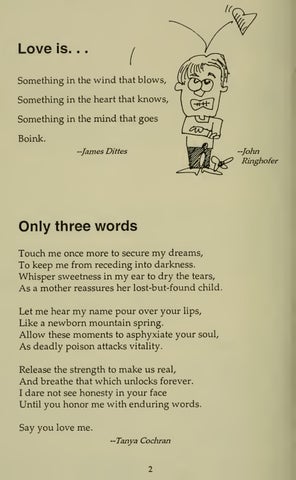 Love is. . .
Something in the wind that blows,
Something in the heart that knows,
Something in the mind that goes
Boink.
--James Dittes
--John
Ringhofer
Only three words
Touch me once more to secure my dreams,
To keep me from receding into darkness.
Whisper sweetness in my ear to dry the tears,
As a mother reassures her lost-but-found child.
Let me hear my name pour over your lips,
Like a newborn mountain spring.
Allow these moments to asphyxiate your soul,
As deadly poison attacks vitality.
Release the strength to make us real,
And breathe that which unlocks forever.
I dare not see honesty in your face
Until you honor me with enduring words.
Say you love me.
--Tanya Cochran
2